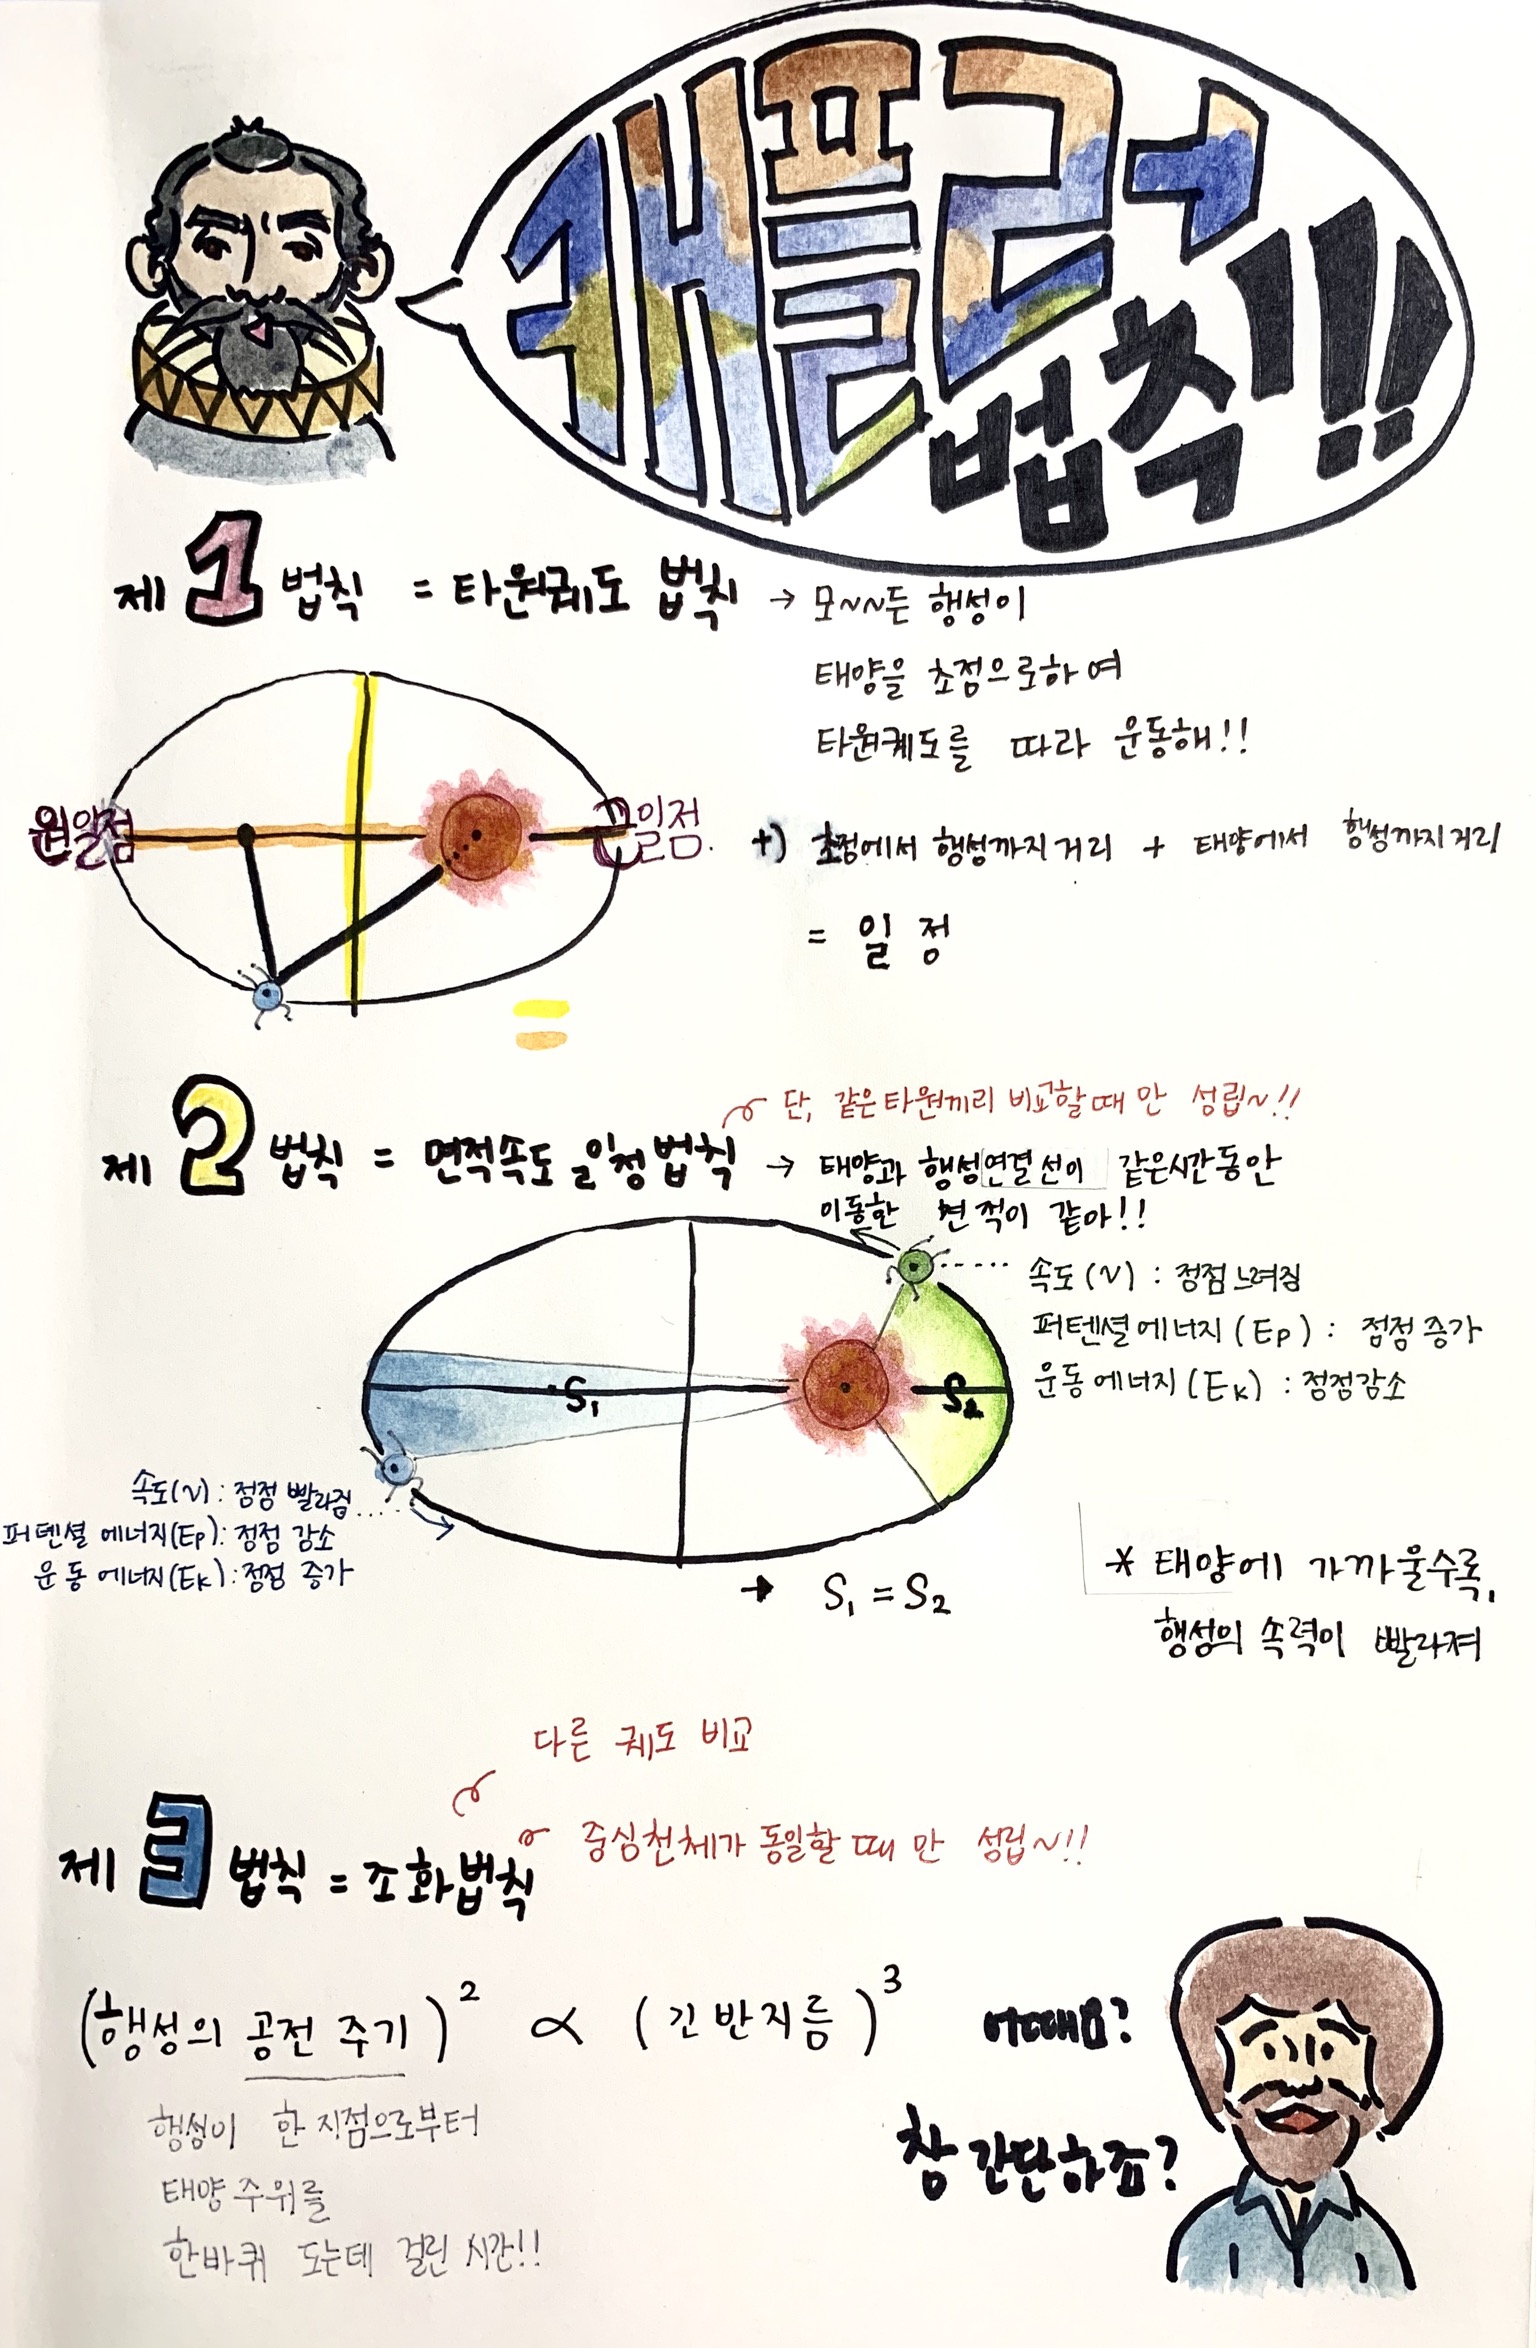 캐플러
법칙!!
제 1 법칙 = 타원궤도 법칙 → 모~~든 행성이
태양을 초점으로하여
타원궤도를 따라 운동해!!
원일점
근일점
+) 초점에서 행성까지 거리 + 태양에서 행성까지 거리
= 일정
단, 같은 타원끼리 비교할 때 만 성립~!!
제 2 법칙 = 면적속도 일정 법칙 → 태양과 행성연결선이 같은시간동안
이동한 면적이 같아!!
속도(v) : 점점 느려짐
퍼텐셜 에너지(Ep) : 점점 증가
운동 에너지(Ek) : 점점감소
S₁
S₂
속도(v) : 점점 빨라짐
퍼텐셜 에너지(Ep) : 점점 감소
운동 에너지(Ek) : 점점 증가
→ S₁ = S₂
* 태양에 가까울수록,
행성의 속력이 빨라져
다른 궤도 비교
중심천체가 동일할 때 만 성립~!!
제 3 법칙 = 조화법칙
(행성의 공전 주기)² ∝ (긴반지름)³
행성이 한 지점으로부터
태양 주위를
한바퀴 도는데 걸린 시간!!
어때요?
참 간단하죠?